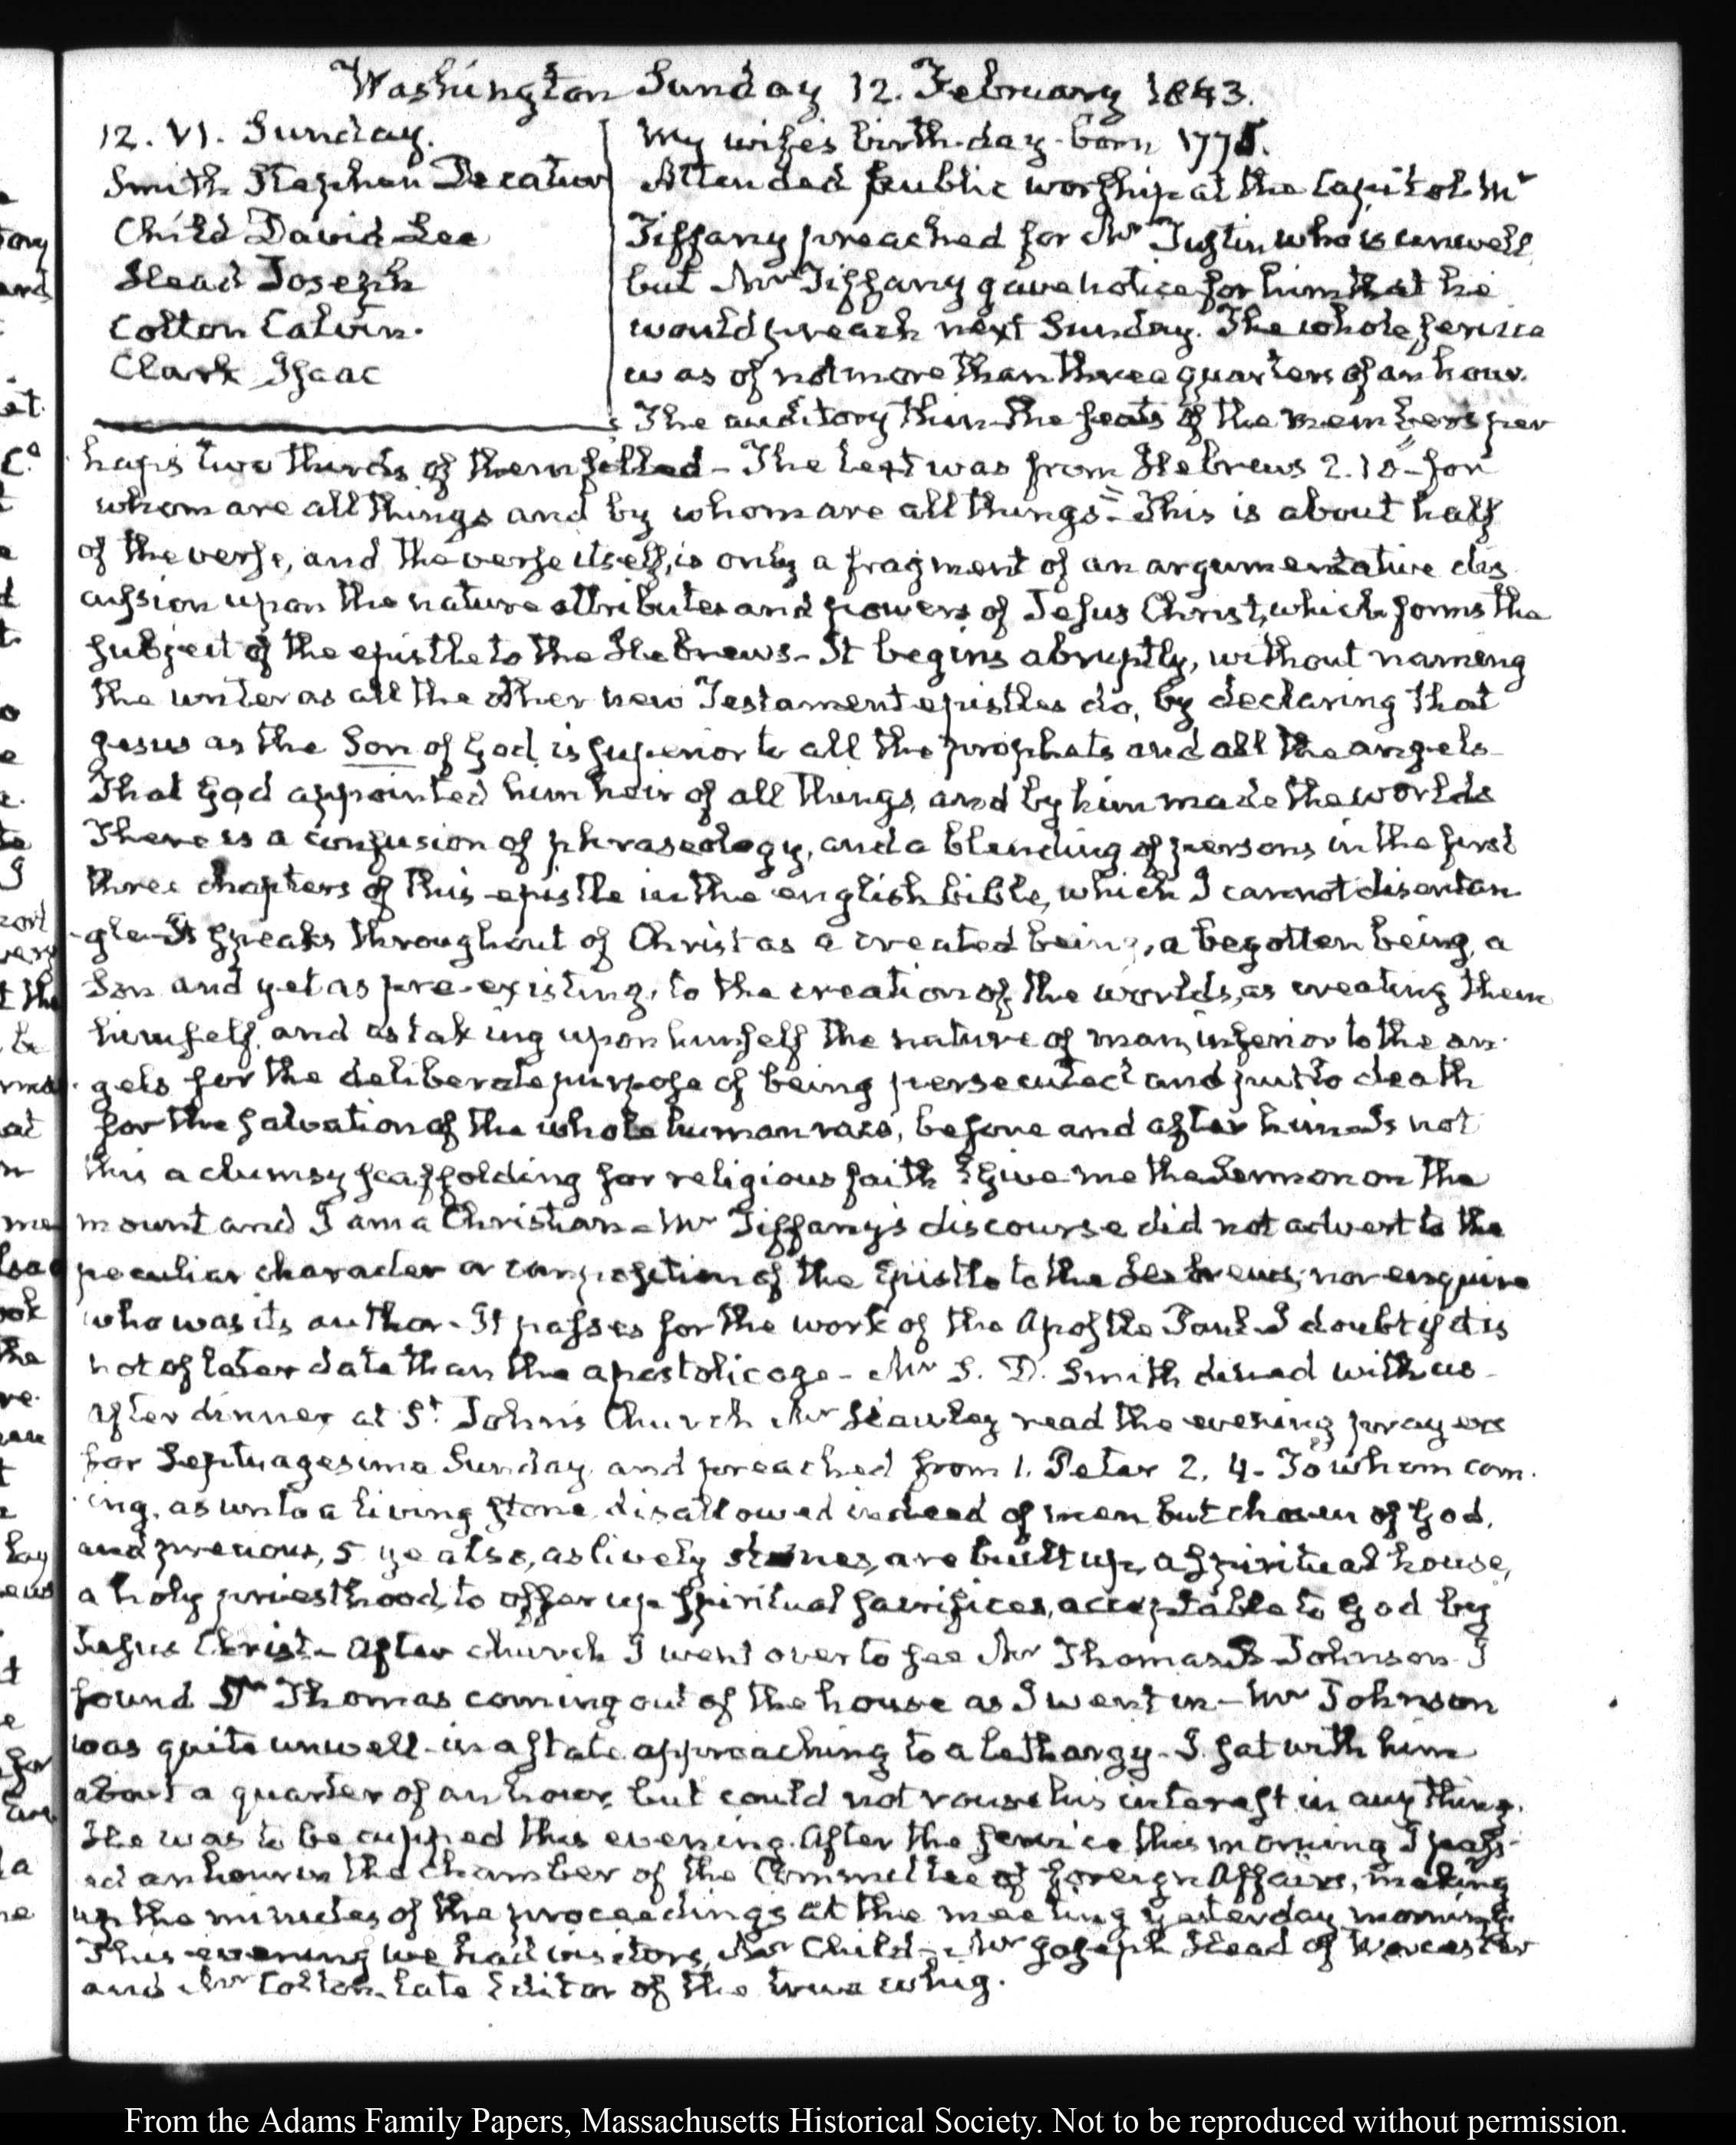 Washington Sunday 12. February 1843.
12. VI. Sunday.
Smith Stephen Decatur
Child David Lee
Head Joseph
Colton Calvin.
Clark Isaac
My wife's birth-day - born 1775.
Attended public worship at the Capitol. Mr
Tiffany preached for Mr Tustin who is unwell
but Mr Tiffany gave notice for him that he
would preach next Sunday. The whole service
was of not more than three quarters of an hour.
The auditory thin - the seats of the members per
haps two thirds of them filled - The text was from Hebrews 2. 10 "for
whom are all things and by whom are all things" - This is about half
of the verse, and the verse itself, is only a fragment of an argumentative dis
cussion upon the nature attributes and powers of Jesus Christ, which forms the
subject of the epistle to the Hebrews - It begins abruptly, without naming
the writer as all the other new Testament epistles do, by declaring that
Jesus as the Son of God, is superior to all the prophets and all the angels -
That God appointed him heir of all things, and by him made the worlds
There is a confusion of phraseology, and a blending of persons in the first
three chapters of this epistle in the english bible, which I cannot disentan
gle - It speaks throughout of Christ as a created being, a begotten being, a
Son and yet as pre-existing, to the creation of the worlds, as creating them
himself, and as taking upon himself the nature of man, inferior to the an-
gels for the deliberate purpose of being persecuted and put to death
for the salvation of the whole human race, before and after him - Is not
this a clumsy scaffolding for religious faith? Give me the Sermon on the
mount and I am a Christian - Mr Tiffany's discourse did not advert to the
peculiar character or composition of the Epistle to the Hebrews, nor enquire
who was its author - It passes for the work of the Apostle Paul - I doubt if it is
not of later date than the apostolic age - Mr S. D. Smith dined with us -
After dinner, at St. John's Church Mr Hawley read the evening prayers
for Septuagesima Sunday, and preached from 1. Peter 2. 4. To whom com-
ing, as unto a living stone, disallowed indeed of men but chosen of God,
and precious, 5 ye also, as lively stones, are built up, a spiritual house,
a holy priesthood, to offer up spiritual sacrifices, acceptable to God by
Jesus Christ - After church I went over to see Mr Thomas B Johnson - I
found Dr Thomas coming out of the house as I went in - Mr Johnson
was quite unwell - in a state approaching to a lethargy - I sat with him
about a quarter of an hour, but could not rouse his interest in any thing.
He was to be cupped this evening. After the service this morning I pass-
ed an hour in the chamber of the Committee of Foreign Affairs, making
up the minutes of the proceedings at the meeting yesterday morning.
This evening we had visitors, Mr Child - Mr Joseph Head of Worcester
and Mr Colton - late Editor of the true whig.
From the Adams Family Papers, Massachusetts Historical Society. Not to be reproduced without permission.